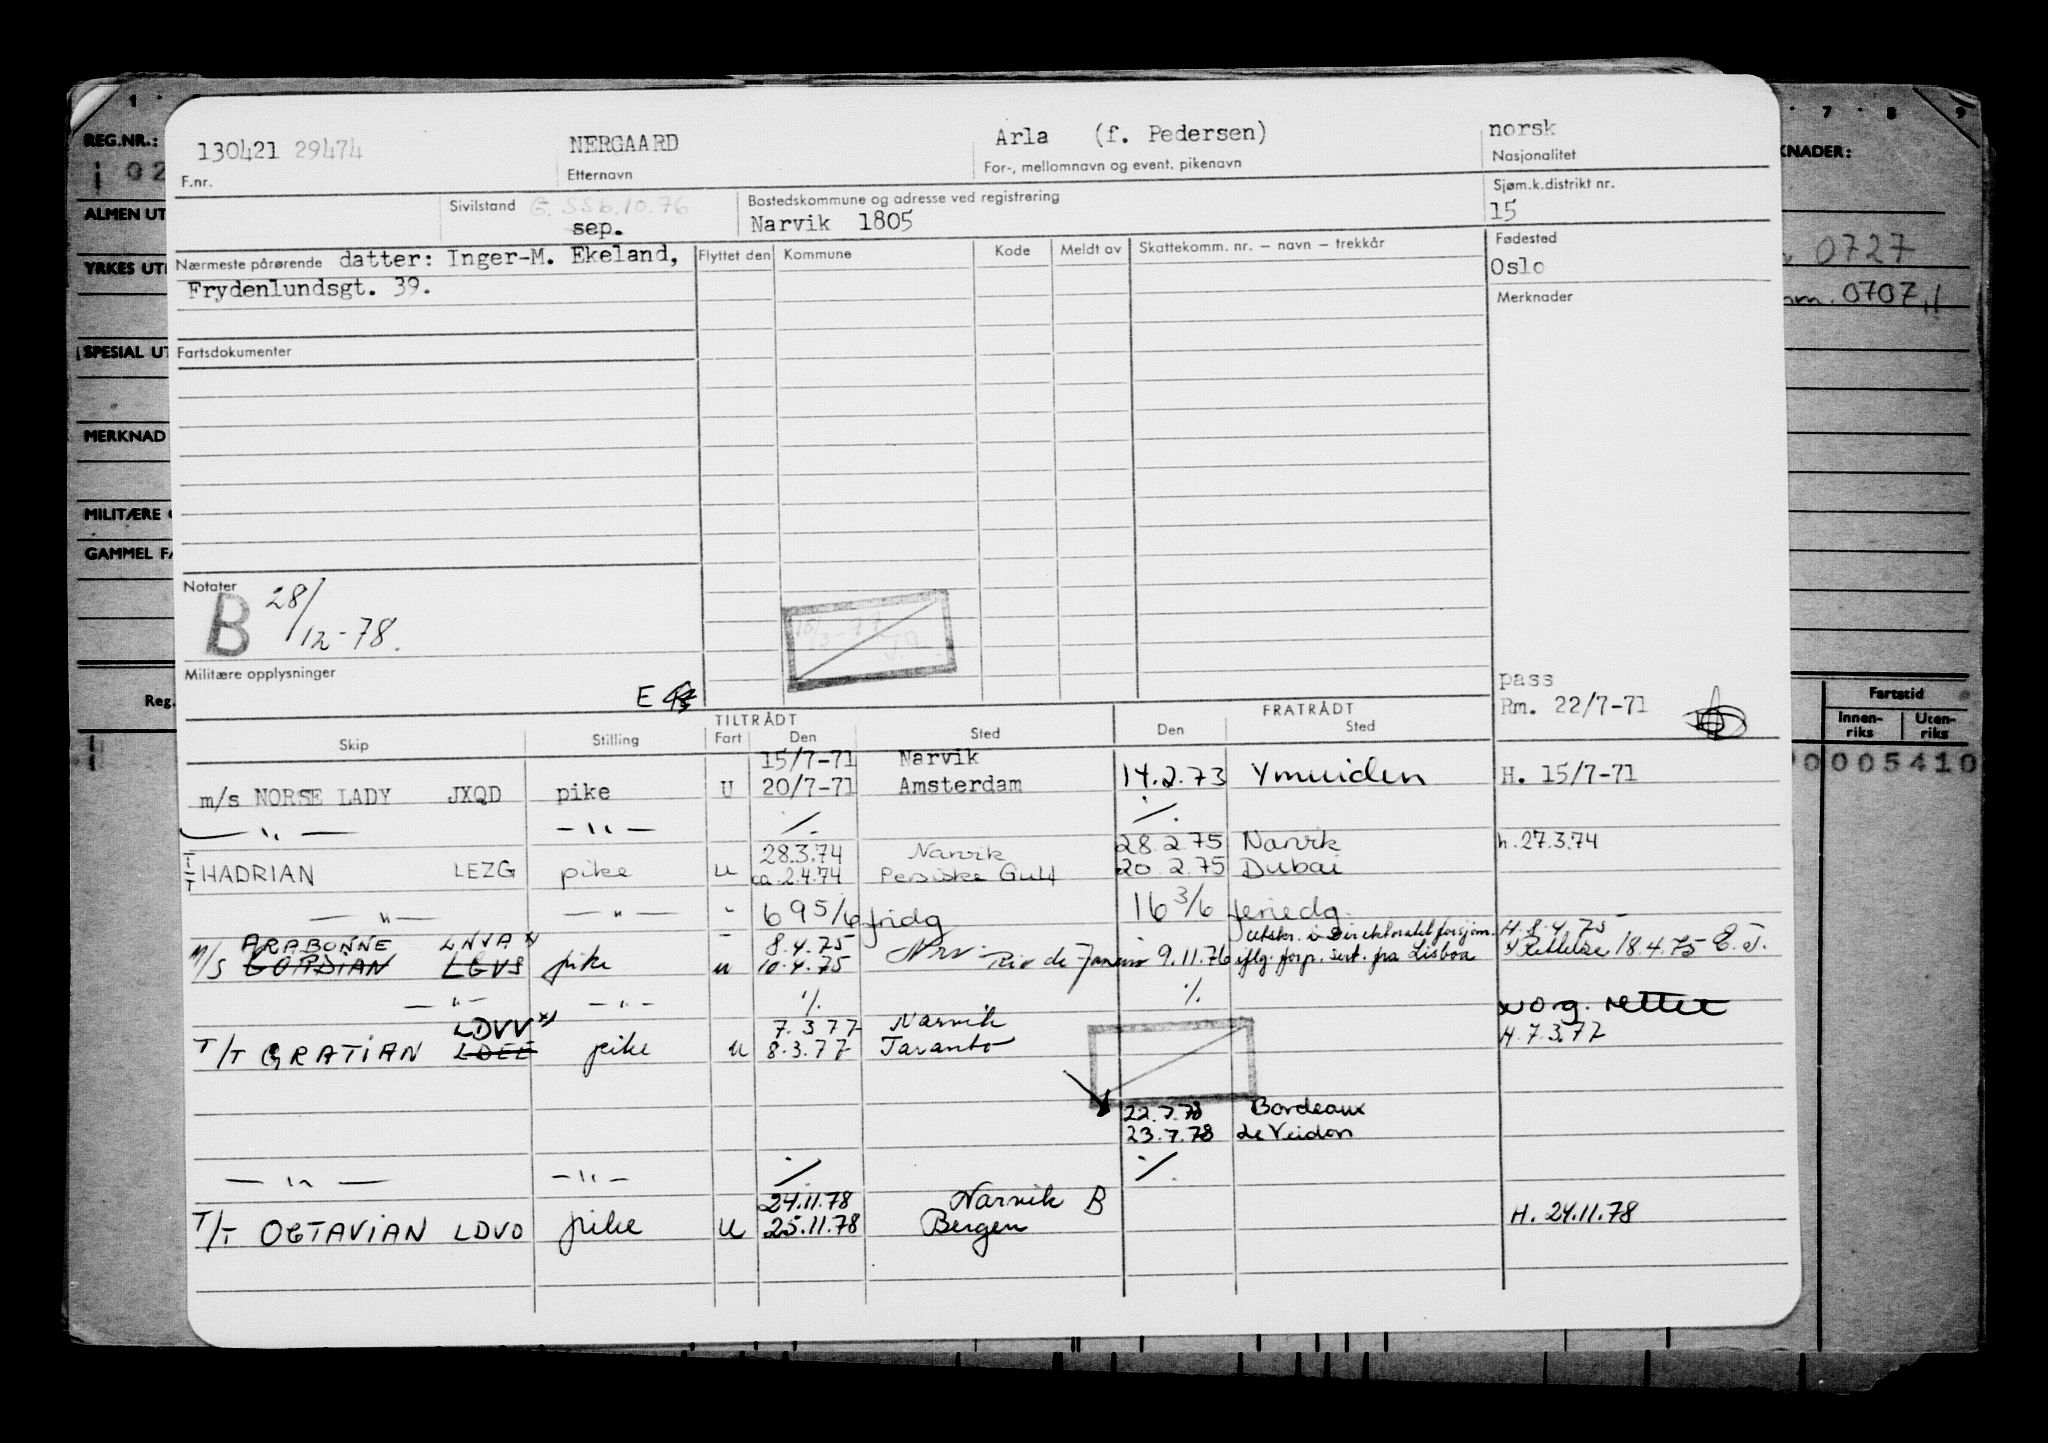 1 7 8 9
REG.NR.: KNADER:
102
ALMEN UT
YRKES UT 0727
0707,1
SPESIAL UT
MERKNAD
MILITÆRE
GAMMEL FA
Reg. Fartstid
Innen-riks Uten-riks
0005410
130421 29474 NERGAARD Arla (f. Pedersen) norsk
F.nr. Etternavn For-, mellomnavn og event. pikenavn Nasjonalitet
Sivilstand G. SSb.10.76 Bostedskommune og adresse ved registrering Sjøm.k.distrikt nr.
sep. Narvik 1805 15
Nærmeste pårørende datter: Inger-M. Ekeland, Flyttet den Kommune Kode Meldt av Skattekomm. nr. – navn – trekkår Fødested
Frydenlundsgt. 39. Oslo
Merknader
Fartsdokumenter
Notater
B 28/12-78.
15/3-77
Militære opplysninger
E
pass
Rm. 22/7-71
TILTRÅDT FRATRÅDT
Skip Stilling Fart Den Sted Den Sted
15/7-71 Narvik
m/s NORSE LADY JXQD pike U 20/7-71 Amsterdam 14.2.73 Ymuiden H. 15/7-71
— " — — " — ./. ./.
28.3.74 Narvik 28.2.75 Narvik h. 27.3.74
T/T HADRIAN LEZG pike U ca. 2.4.74 Persiske Gulf 20.2.75 Dubai
— " — — " — - 6 95/6 fridg 16 3/6 feriedg.
ARABONNE LNVA x) 8.4.75 Utskr. i Direktoratet for sjøm. H. 8.4.75
M/S GORDIAN LGVS pike u 10.4.75 Nrv. Rio de Janeiro 9.11.76 iflg. forp. sert. fra Lisboa x) Rettelse 18.4.75 E.T.
— " — — " — ./. ./.
LDVV x) 7.3.77 Narvik x) org. rettet
T/T GRATIAN LDEE pike u 8.3.77 Taranto H. 7.3.77
22.7.78 Bordeaux
23.7.78 le Verdon
— " — — " — ./. ./.
24.11.78 Narvik B
T/T OCTAVIAN LDVO pike U 25.11.78 Bergen H. 24.11.78